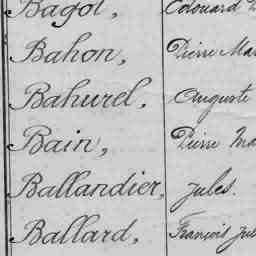 Bagot, Edouard
Bahon, Pierre Mar
Bahurel, Auguste
Bain, Pierre Ma
Ballandier, Jules.
Ballard, François Jul